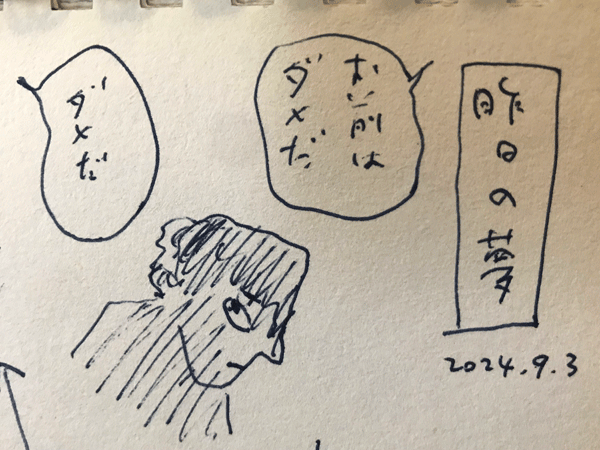 昨日の夢
2024.9.3
お前は
ダメだ
ダメだ